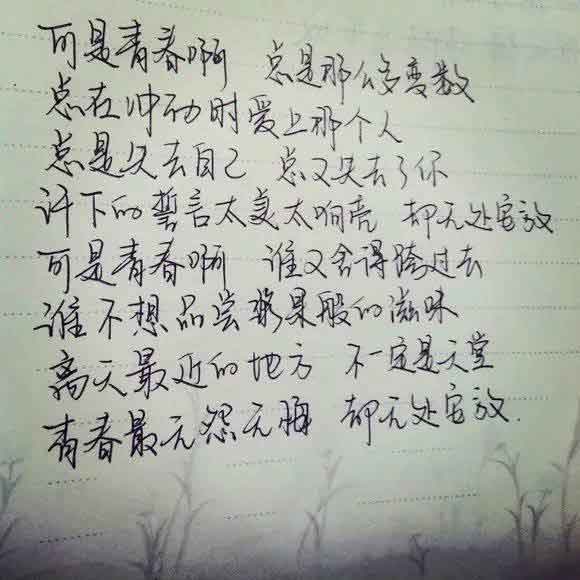 可是青春啊 总是那么多变数
总在冲动时爱上那个人
总是失去自己 总又失去了你
许下的誓言太美太响亮 却无处安放
可是青春啊 谁又舍得跨过去
谁不想品尝果般的滋味
离天最近的地方 不一定是天堂
青春最无怨无悔 却无处安放.